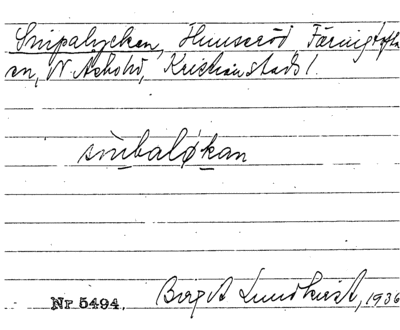 Snipalycken, Hunseröd Färingtofta
sn, N. Åsbo hd, Kristianstads l.
snìbaløkan
Nr 5494. Birgit Lundkvist, 1936